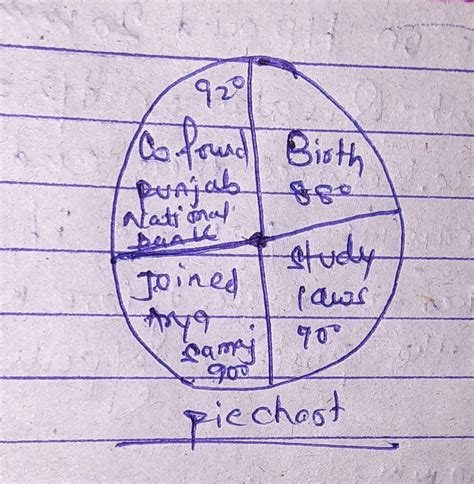 92°
Co found
punjab
National
Bank
Birth
88°
Joined
Arya
Samaj
90°
study
laws
70°
piechart